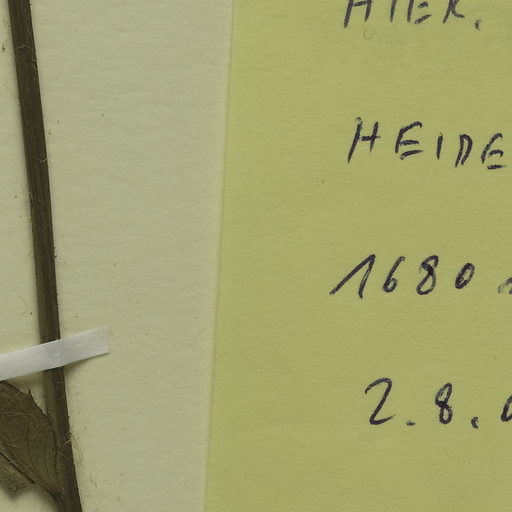 HIER.
HEIDE
1680
2.8.